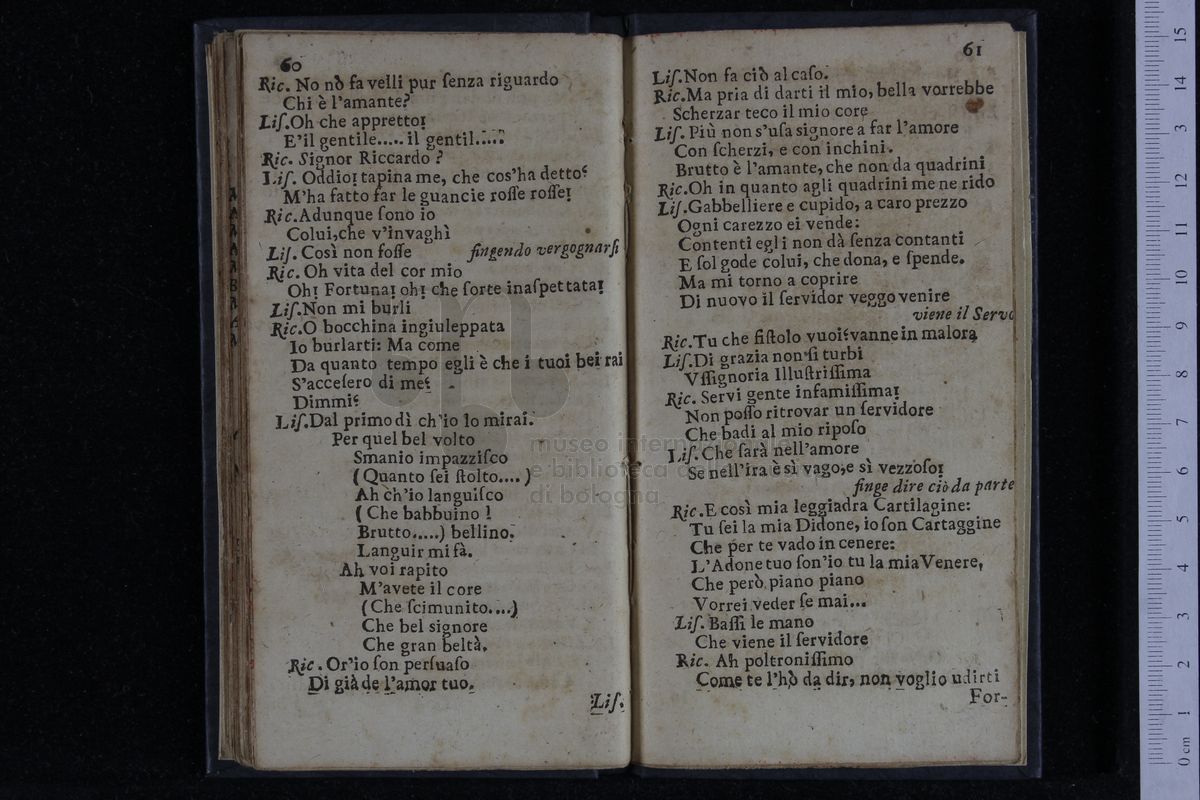 60
Ric. No nò favelli pur ſenza riguardo
Chi è l'amante?
Liſ.Oh che appretto!
E'il gentile.....il gentil.....
Ric. Signor Riccardo ?
Liſ. Oddio! tapina me, che cos'ha detto?
M'ha fatto far le guancie roſſe roſſe!
Ric.Adunque ſono io
Colui,che v'invaghì
Liſ. Così non foſſe fingendo vergognarſi
Ric. Oh vita del cor mio
Oh! Fortuna! oh! che ſorte inaſpettata!
Liſ.Non mi burli
Ric.O bocchina ingiuleppata
Io burlarti: Ma come
Da quanto tempo egli è che i tuoi bei rai
S'acceſero di me?
Dimmi?
Liſ.Dal primo dì ch'io lo mirai.
Per quel bel volto
Smanio impazziſco
(Quanto ſei ſtolto....)
Ah ch'io languiſco
(Che babbuino !
Brutto.....) bellino.
Languir mi fà.
Ah voi rapito
M'avete il core
(Che ſcimunito....)
Che bel signore
Che gran beltà.
Ric. Or'io ſon perſuaſo
Di già de l'amor tuo.
Liſ.
61
Liſ.Non fa ciò al caſo.
Ric.Ma pria di darti il mio, bella vorrebbe
Scherzar teco il mio core
Liſ. Più non s'uſa signore a far l'amore
Con ſcherzi, e con inchini.
Brutto è l'amante, che non da quadrini
Ric.Oh in quanto agli quadrini me ne rido
Liſ.Gabbelliere e cupido, a caro prezzo
Ogni carezzo ei vende:
Contenti egli non dà ſenza contanti
E ſol gode colui, che dona, e ſpende.
Ma mi torno a coprire
Di nuovo il ſervidor veggo venire
viene il Servo
Ric.Tu che fiſtolo vuoi?vanne in malora
Liſ.Di grazia non ſi turbi
Vſſignoria Illuſtriſſima
Ric. Servi gente infamiſſima!
Non poſſo ritrovar un ſervidore
Che badi al mio ripoſo
Liſ. Che farà nell'amore
Se nell'ira è sì vago,e sì vezzoſo!
finge dire ciò da parte
Ric.E così mia leggiadra Cartilagine:
Tu ſei la mia Didone, io ſon Cartaggine
Che per te vado in cenere:
L'Adone tuo ſon'io tu la mia Venere,
Che però piano piano
Vorrei veder ſe mai...
Liſ. Baſſi le mano
Che viene il ſervidore
Ric. Ah poltroniſſimo
Come te l'hò da dir, non voglio udirti
For-